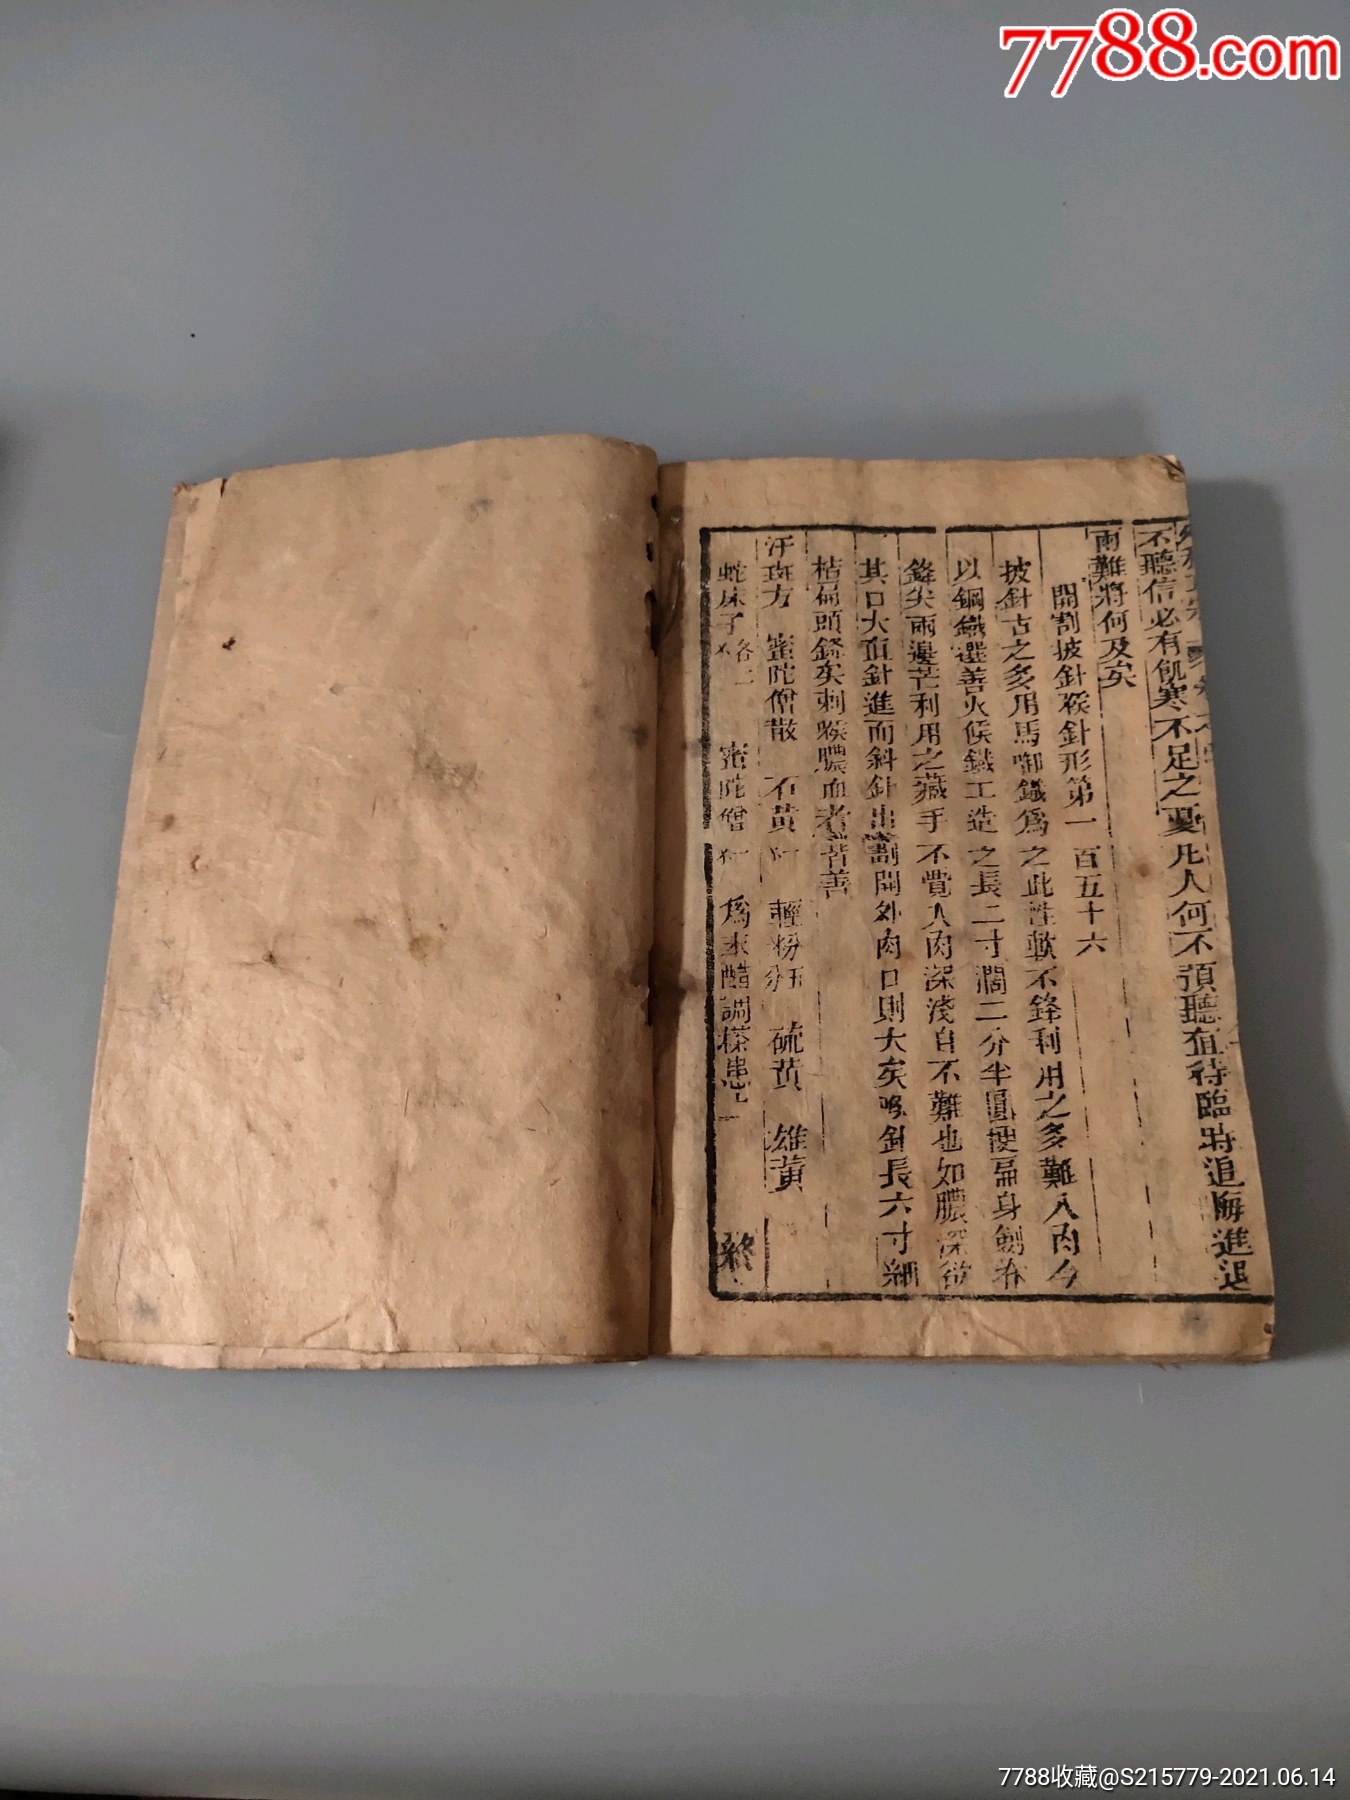 7788.com
不聽信必有飢寒不足之憂凡人何不預聽直待臨時追悔進退
兩難將何及矣
開割披針喉針形第一百五十六
披針古之多用馬啣鐵爲之此性軟不鋒利用之多難入肉今
以鋼鐵選善火候鐵工造之長二寸濶二分半圓梗扁身劍脊
鋒尖兩邊芒利用之藏手不覺入肉深淺自不難也如膿深欲
其口大直針進而斜針出劃開外肉口則大矣喉針長六寸細
梗扁頭鋒尖刺喉膿血者皆善
汗斑方 蜜陀僧散 石黃 輕粉 硫黃 雄黃
蛇床子 各二 蜜陀僧 爲末醋調搽患上
終
7788收藏@S215779-2021.06.14